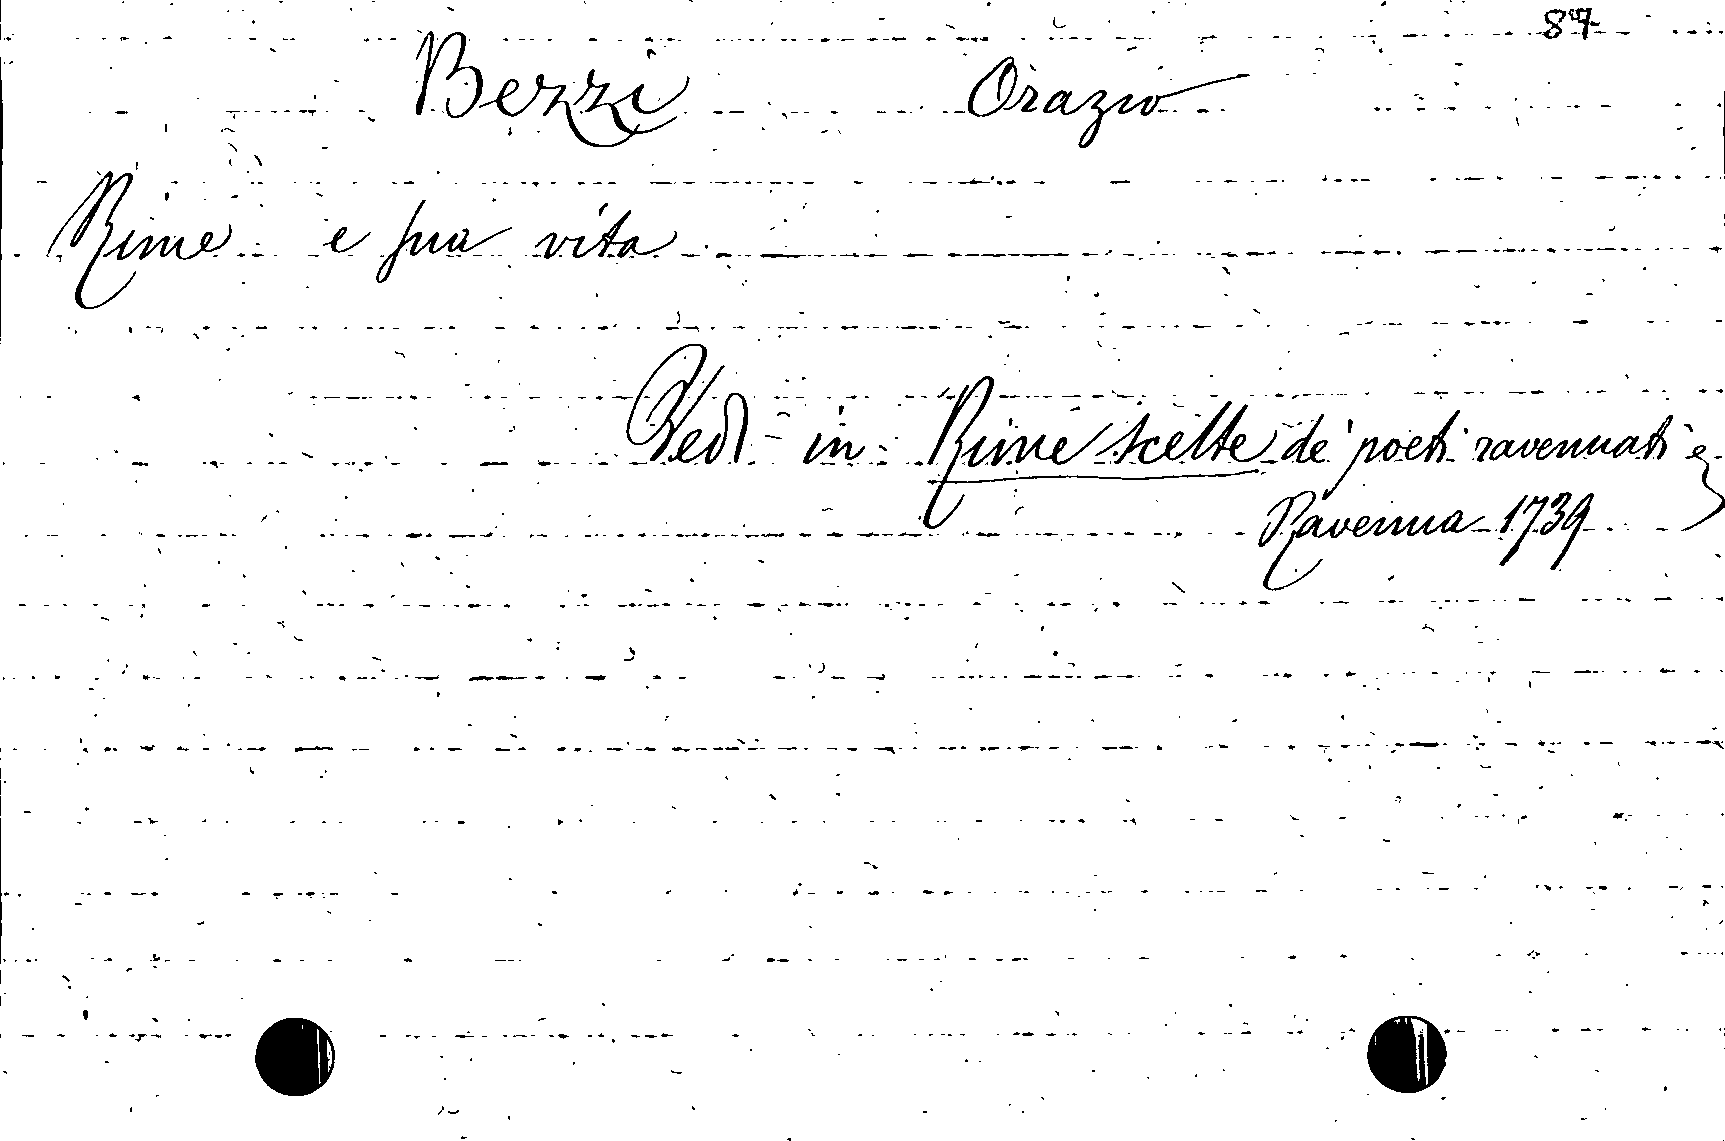 87
Bezzi Orazio
Rime e sua vita
Vedi in Rime scelte de' poeti ravennati
Ravenna 1739